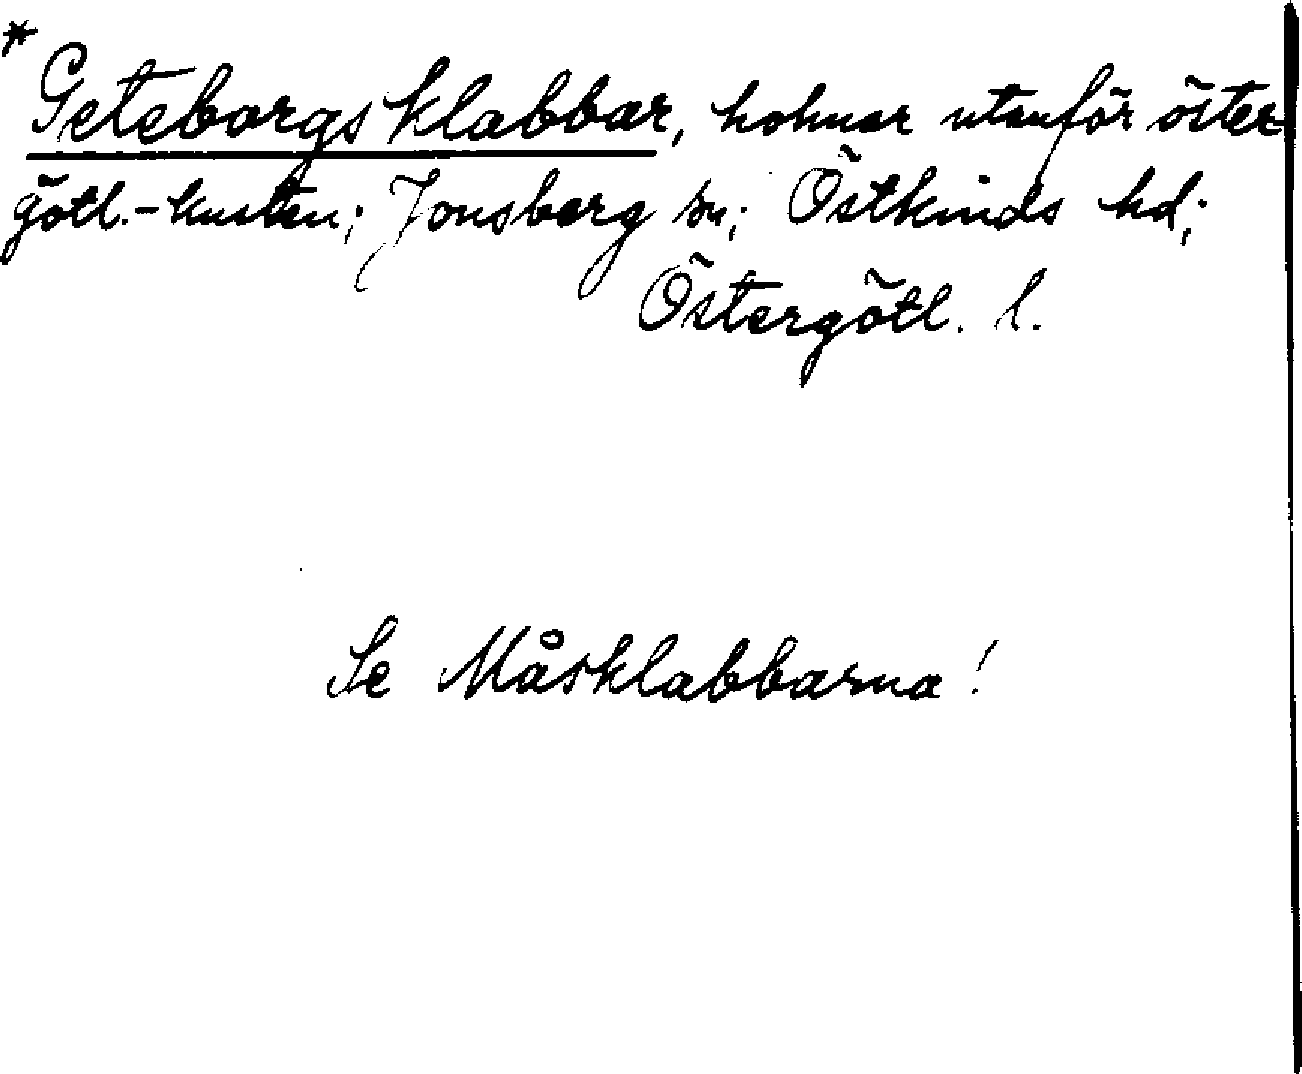 * Geteborgs klabbar, holmar utanför öster-
götl.-kusten; Jonsberg sn; Östkinds hd;
Östergötl. l.
Se Måsklabbarna!